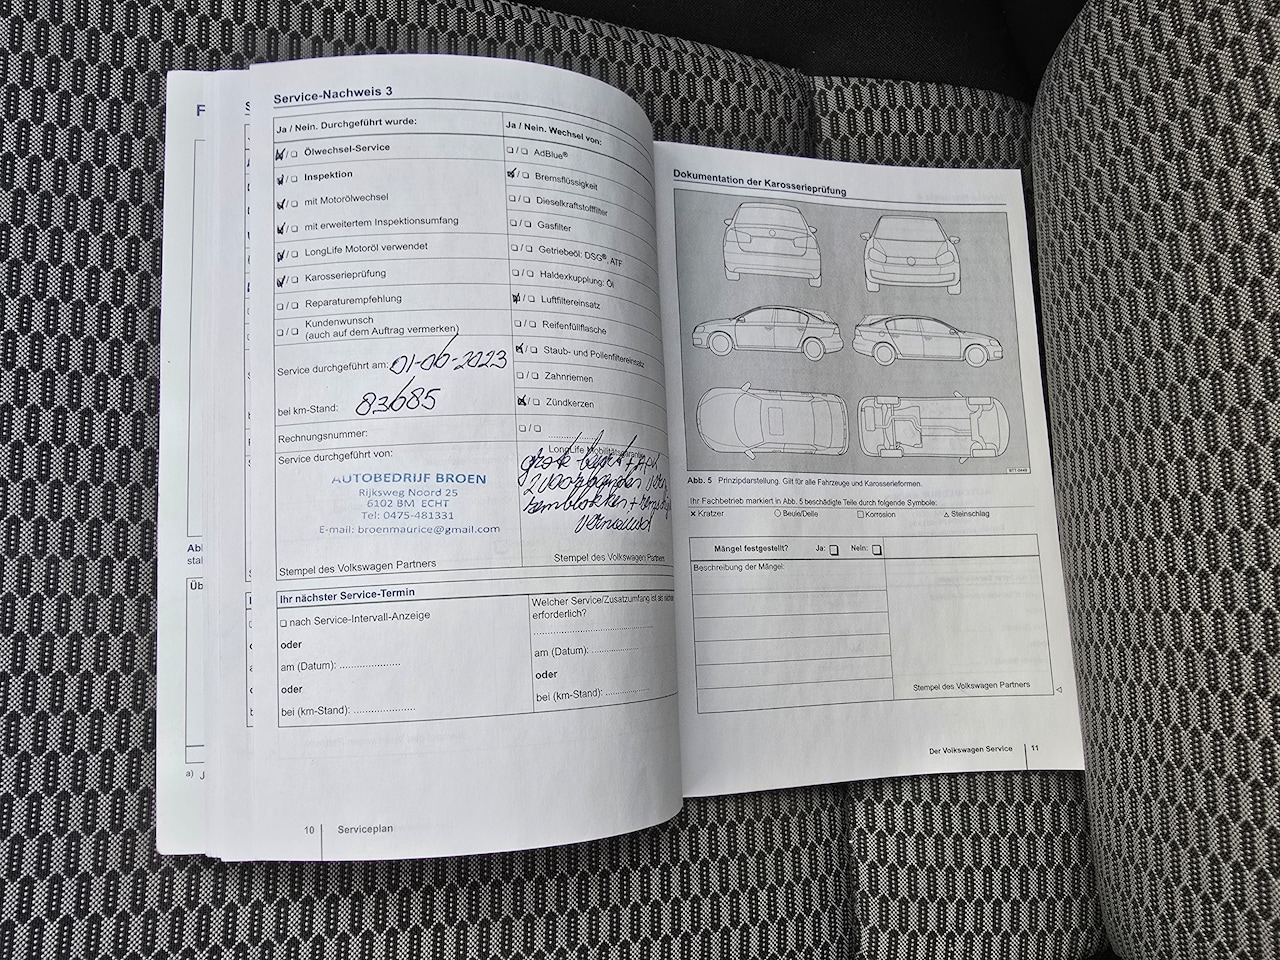 Service-Nachweis 3
Ja / Nein. Durchgeführt wurde:
Ölwechsel-Service
Inspektion
mit Motorölwechsel
mit erweitertem Inspektionsumfang
LongLife Motoröl verwendet
Karosserieprüfung
Reparaturempfehlung
Kundenwunsch
(auch auf dem Auftrag vermerken)
Service durchgeführt am: 01-06-2023
bei km-Stand: 83685
Rechnungsnummer:
Service durchgeführt von:
AUTOBEDRIJF BROEN
Rijksweg Noord 25
6102 BM ECHT
Tel: 0475-481331
E-mail: broenmaurice@gmail.com
Stempel des Volkswagen Partners
Ja / Nein. Wechsel von:
AdBlue®
Bremsflüssigkeit
Dieselkraftstofffilter
Gasfilter
Getriebeöl: DSG®, ATF
Haldexkupplung: Öl
Luftfiltereinsatz
Reifenfüllflasche
Staub- und Pollenfiltereinsatz
Zahnriemen
Zündkerzen
LongLife Mobilitätsgarantie
grote beurt + APK
2 voorbanden
remblokken +
vernieuwd
Stempel des Volkswagen Partners
Ihr nächster Service-Termin
nach Service-Intervall-Anzeige
oder
am (Datum): .....................
oder
bei (km-Stand): .....................
Welcher Service/Zusatzumfang ist als
erforderlich?
am (Datum): ................
oder
bei (km-Stand): ................
10 Serviceplan
Dokumentation der Karosserieprüfung
Abb. 5 Prinzipdarstellung. Gilt für alle Fahrzeuge und Karosserieformen.
Ihr Fachbetrieb markiert in Abb. 5 beschädigte Teile durch folgende Symbole:
× Kratzer ○ Beule/Delle □ Korrosion △ Steinschlag
Mängel festgestellt? Ja: Nein:
Beschreibung der Mängel:
Stempel des Volkswagen Partners
Der Volkswagen Service 11